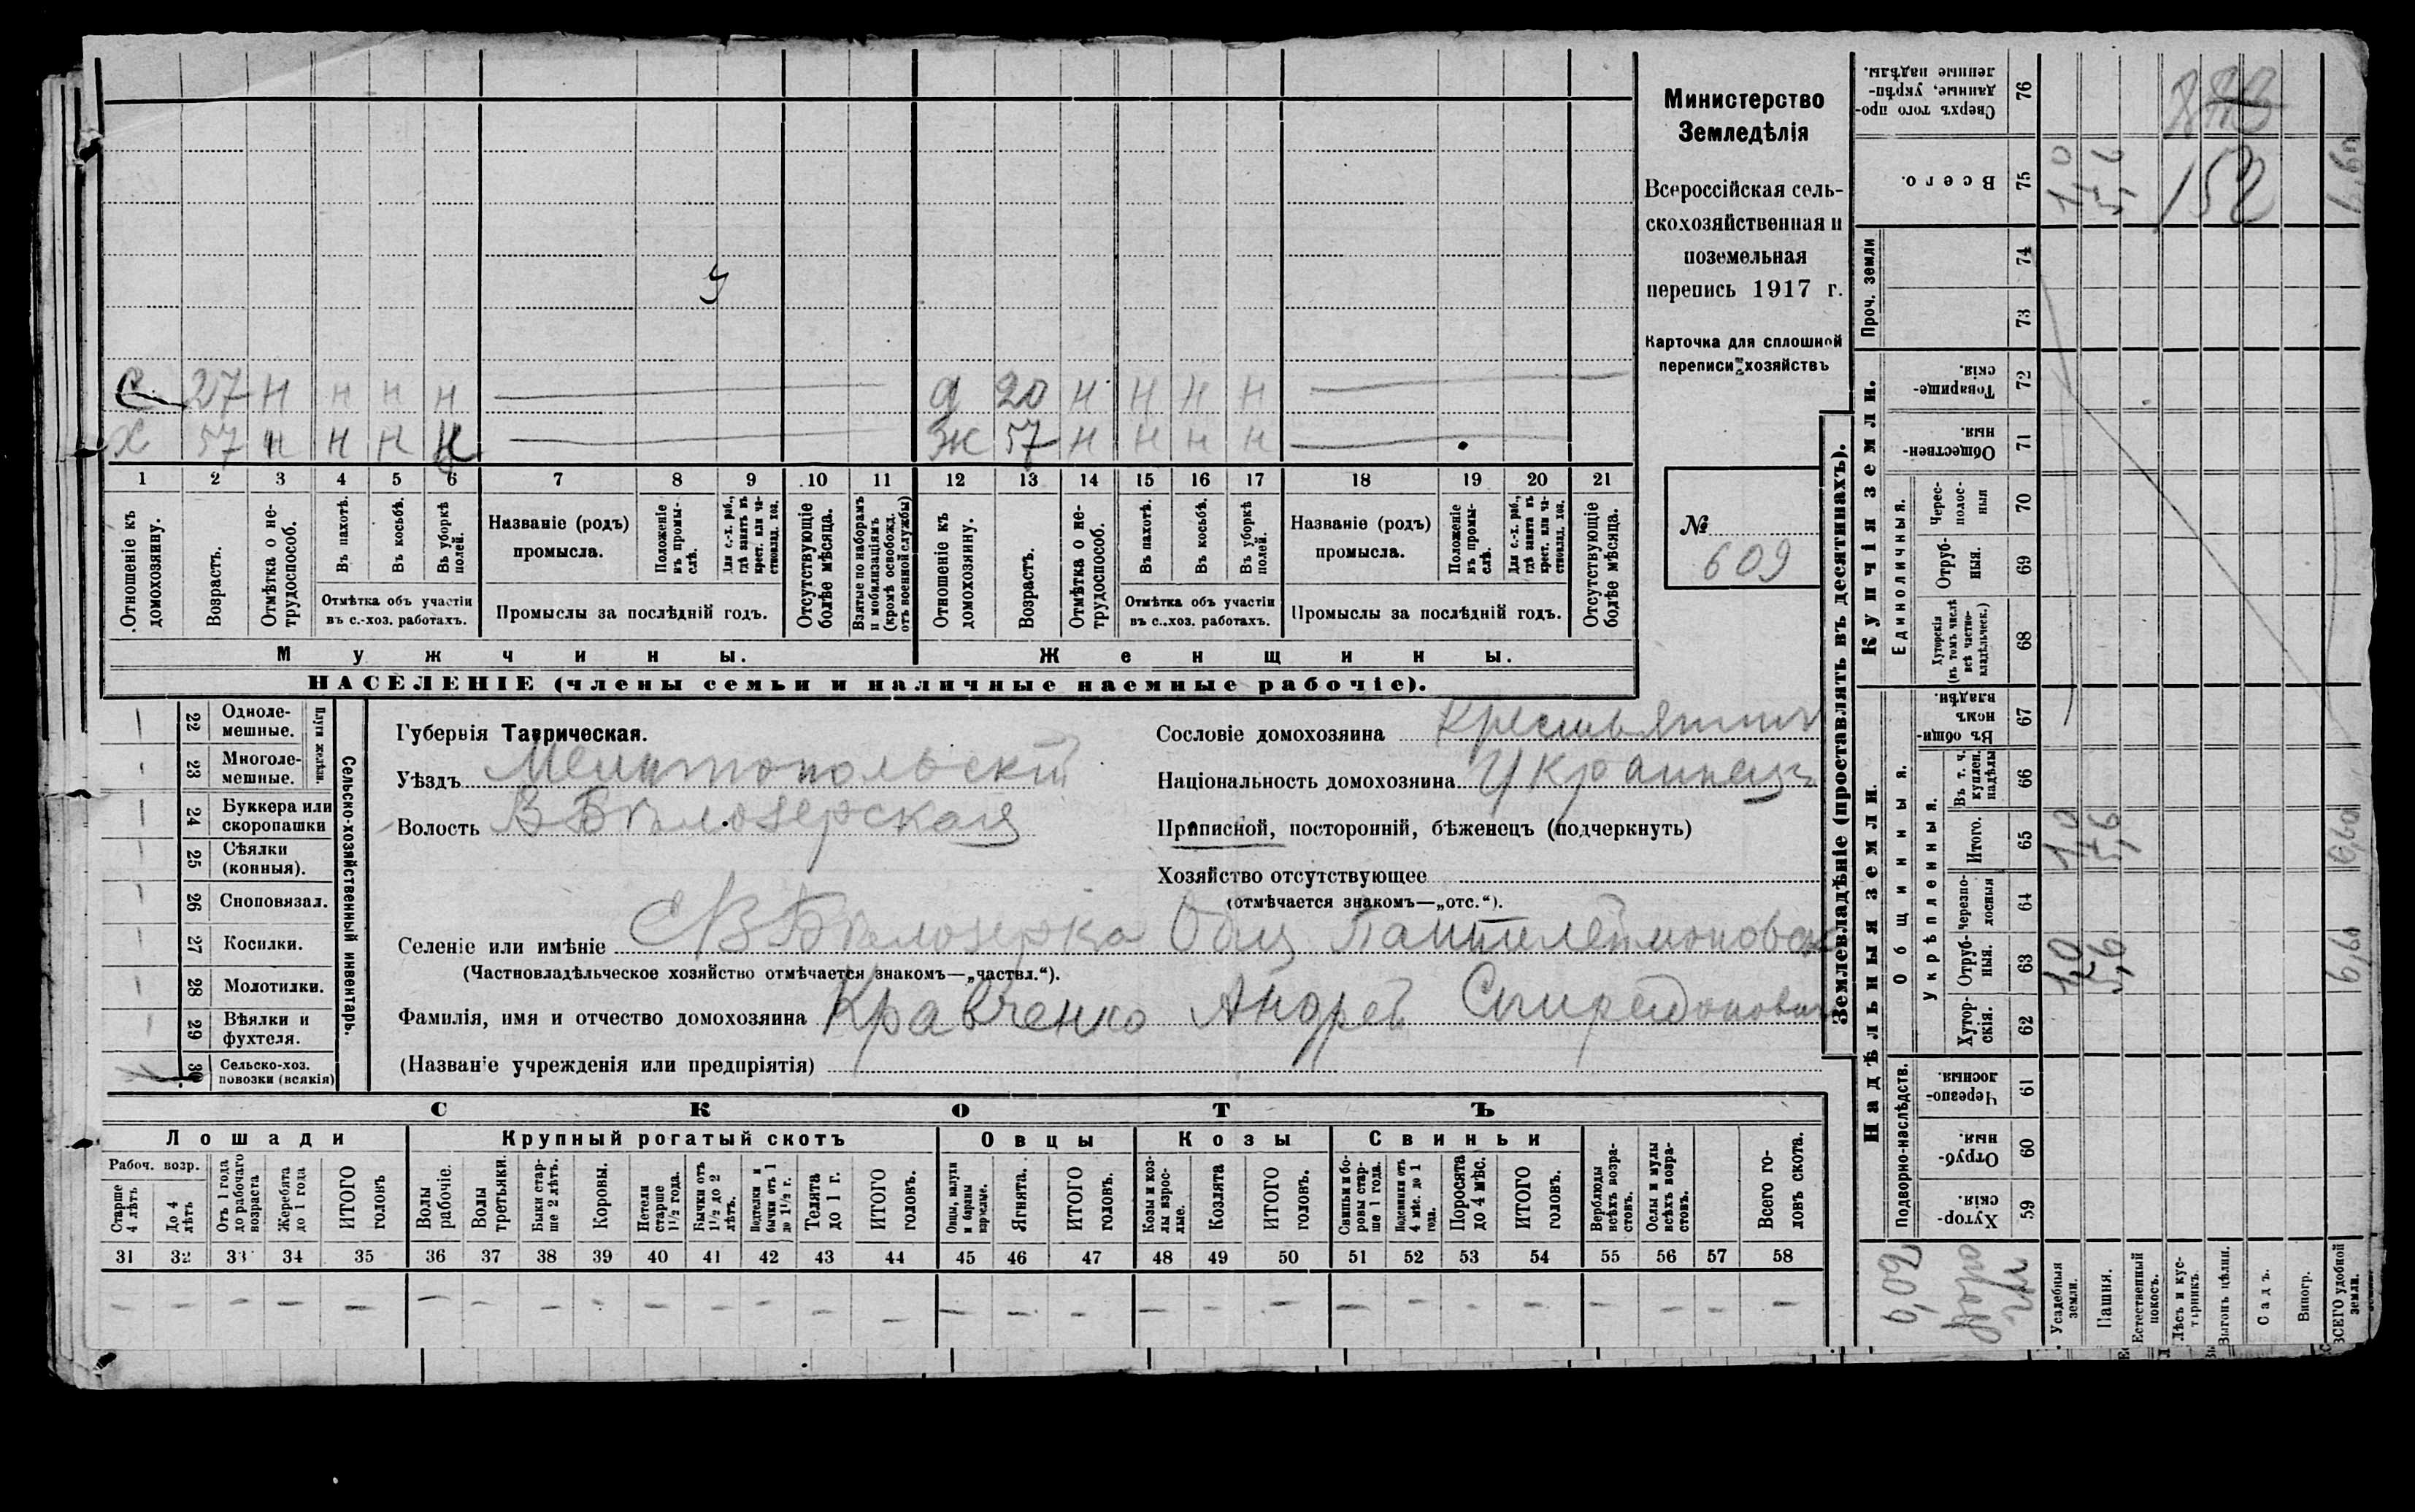 Министерство
Земледѣлія
Всероссійская сель-
скохозяйственная и
поземельная
перепись 1917 г.
Карточка для сплошной
переписи хозяйствъ
№ 609
С 27 Н Н Н Н
Д 20 Н Н Н Н
Х 57 Н Н Н Н
Ж 57 Н Н Н Н
1 2 3 4 5 6 7 8 9 10 11 12 13 14 15 16 17 18 19 20 21
Отношеніе къ домохозяину.
Возрастъ.
Отмѣтка о не-трудоспособ.
Въ пахотѣ.
Въ косьбѣ.
Въ уборкѣ полей.
Отмѣтка объ участіи
въ с.-хоз. работахъ.
Названіе (родъ)
промысла.
Положеніе въ промы-слѣ.
Для с.-х. раб., гдѣ занятъ въ крест. или ча-стновлад. хоз.
Промыслы за послѣдній годъ.
Отсутствующіе болѣе мѣсяца.
Взятые по наборамъ и мобилизаціямъ (кромѣ освобожд. отъ военной службы)
Отношеніе къ домохозяину.
Возрастъ.
Отмѣтка о не-трудоспособ.
Въ пахотѣ.
Въ косьбѣ.
Въ уборкѣ полей.
Отмѣтка объ участіи
въ с.-хоз. работахъ.
Названіе (родъ)
промысла.
Положеніе въ промы-слѣ.
Для с.-х. раб., гдѣ занята въ крест. или ча-стновлад. хоз.
Промыслы за послѣдній годъ.
Отсутствующіе болѣе мѣсяца.
Мужчины.
Женщины.
НАСЕЛЕНІЕ (члены семьи и наличные наемные рабочіе).
Сельско-хозяйственный инвентарь.
Плуги желѣзн.
22 Одноле-мешные.
23 Многоле-мешные.
24 Буккера или скоропашки
25 Сѣялки (конныя).
26 Сноповязал.
27 Косилки.
28 Молотилки.
29 Вѣялки и фухтеля.
30 Сельско-хоз. повозки (всякія)
Губернія Таврическая.
Уѣздъ Мелитопольскій
Волость В Бѣлозерская
Сословіе домохозяина Крестьянин
Національность домохозяина Украинец
Приписной, посторонній, бѣженецъ (подчеркнуть)
Хозяйство отсутствующее
(отмѣчается знакомъ—„отс.“).
Селеніе или имѣніе С В Бѣлозерка Общ
(Частновладѣльческое хозяйство отмѣчается знакомъ—„частвл.“).
Фамилія, имя и отчество домохозяина Кравченко Андрей Спиридонович
(Названіе учрежденія или предпріятія)
СКОТЪ
Лошади Крупный рогатый скотъ Овцы Козы Свиньи
Рабоч. возр.
Старше 4 лѣтъ
До 4 лѣтъ
Отъ 1 года до рабочаго возраста
Жеребята до 1 года
ИТОГО головъ
Волы рабочіе.
Волы третьяки.
Быки стар-ше 2 лѣтъ.
Коровы.
Нетели старше 1½ года.
Бычки отъ 1½ до 2 лѣтъ.
Подтелки и бычки отъ 1 до 1½ г.
Телята до 1 г.
ИТОГО головъ.
Овцы, валухи и бараны взрослые.
Ягнята.
ИТОГО головъ.
Козы и коз-лы взрос-лые.
Козлята
ИТОГО головъ.
Свиньи и бо-ровы стар-ше 1 года.
Подсвинки отъ 4 мѣс. до 1 года.
Поросята до 4 мѣс.
ИТОГО головъ.
Верблюды всѣхъ возра-стовъ.
Ослы и мулы всѣхъ возра-стовъ.
Всего го-ловъ скота.
31 32 33 34 35 36 37 38 39 40 41 42 43 44 45 46 47 48 49 50 51 52 53 54 55 56 57 58
Землевладѣніе (проставлять въ десятинахъ).
Надѣльныя земли.
Купчія земли.
Проч. земли
Подворно-наслѣдств.
Общинныя.
Укрѣпленныя.
Единоличныя.
Сверхъ того про-данные, укрѣп-ленные надѣлы. 76
Всего. 75 1,0 5,6 152 6,60
74
73
Товарище-скія. 72
Обществен-ныя. 71
Черес-полос-ныя 70
Отруб-ныя. 69
Хуторскія (въ томъ числѣ всѣ частно-владѣльческ.) 68
Въ общи-номъ владѣн. 67
Въ т. ч. куплен. надѣлы 66
Итого. 65 1,0 5,6 6,60
Черезпо-лосныя 64
Отруб-ныя. 63 1,0 5,6 6,60
Хутор-скія. 62
Черезпо-лосныя. 61
Отруб-ныя. 60
Хутор-скія. 59
Усадебныя земли.
Пашня.
Естественный покосъ.
Лѣсъ и кус-тарникъ
Выгонъ цѣлин.
Садъ.
Виногр.
ВСЕГО удобной земли.